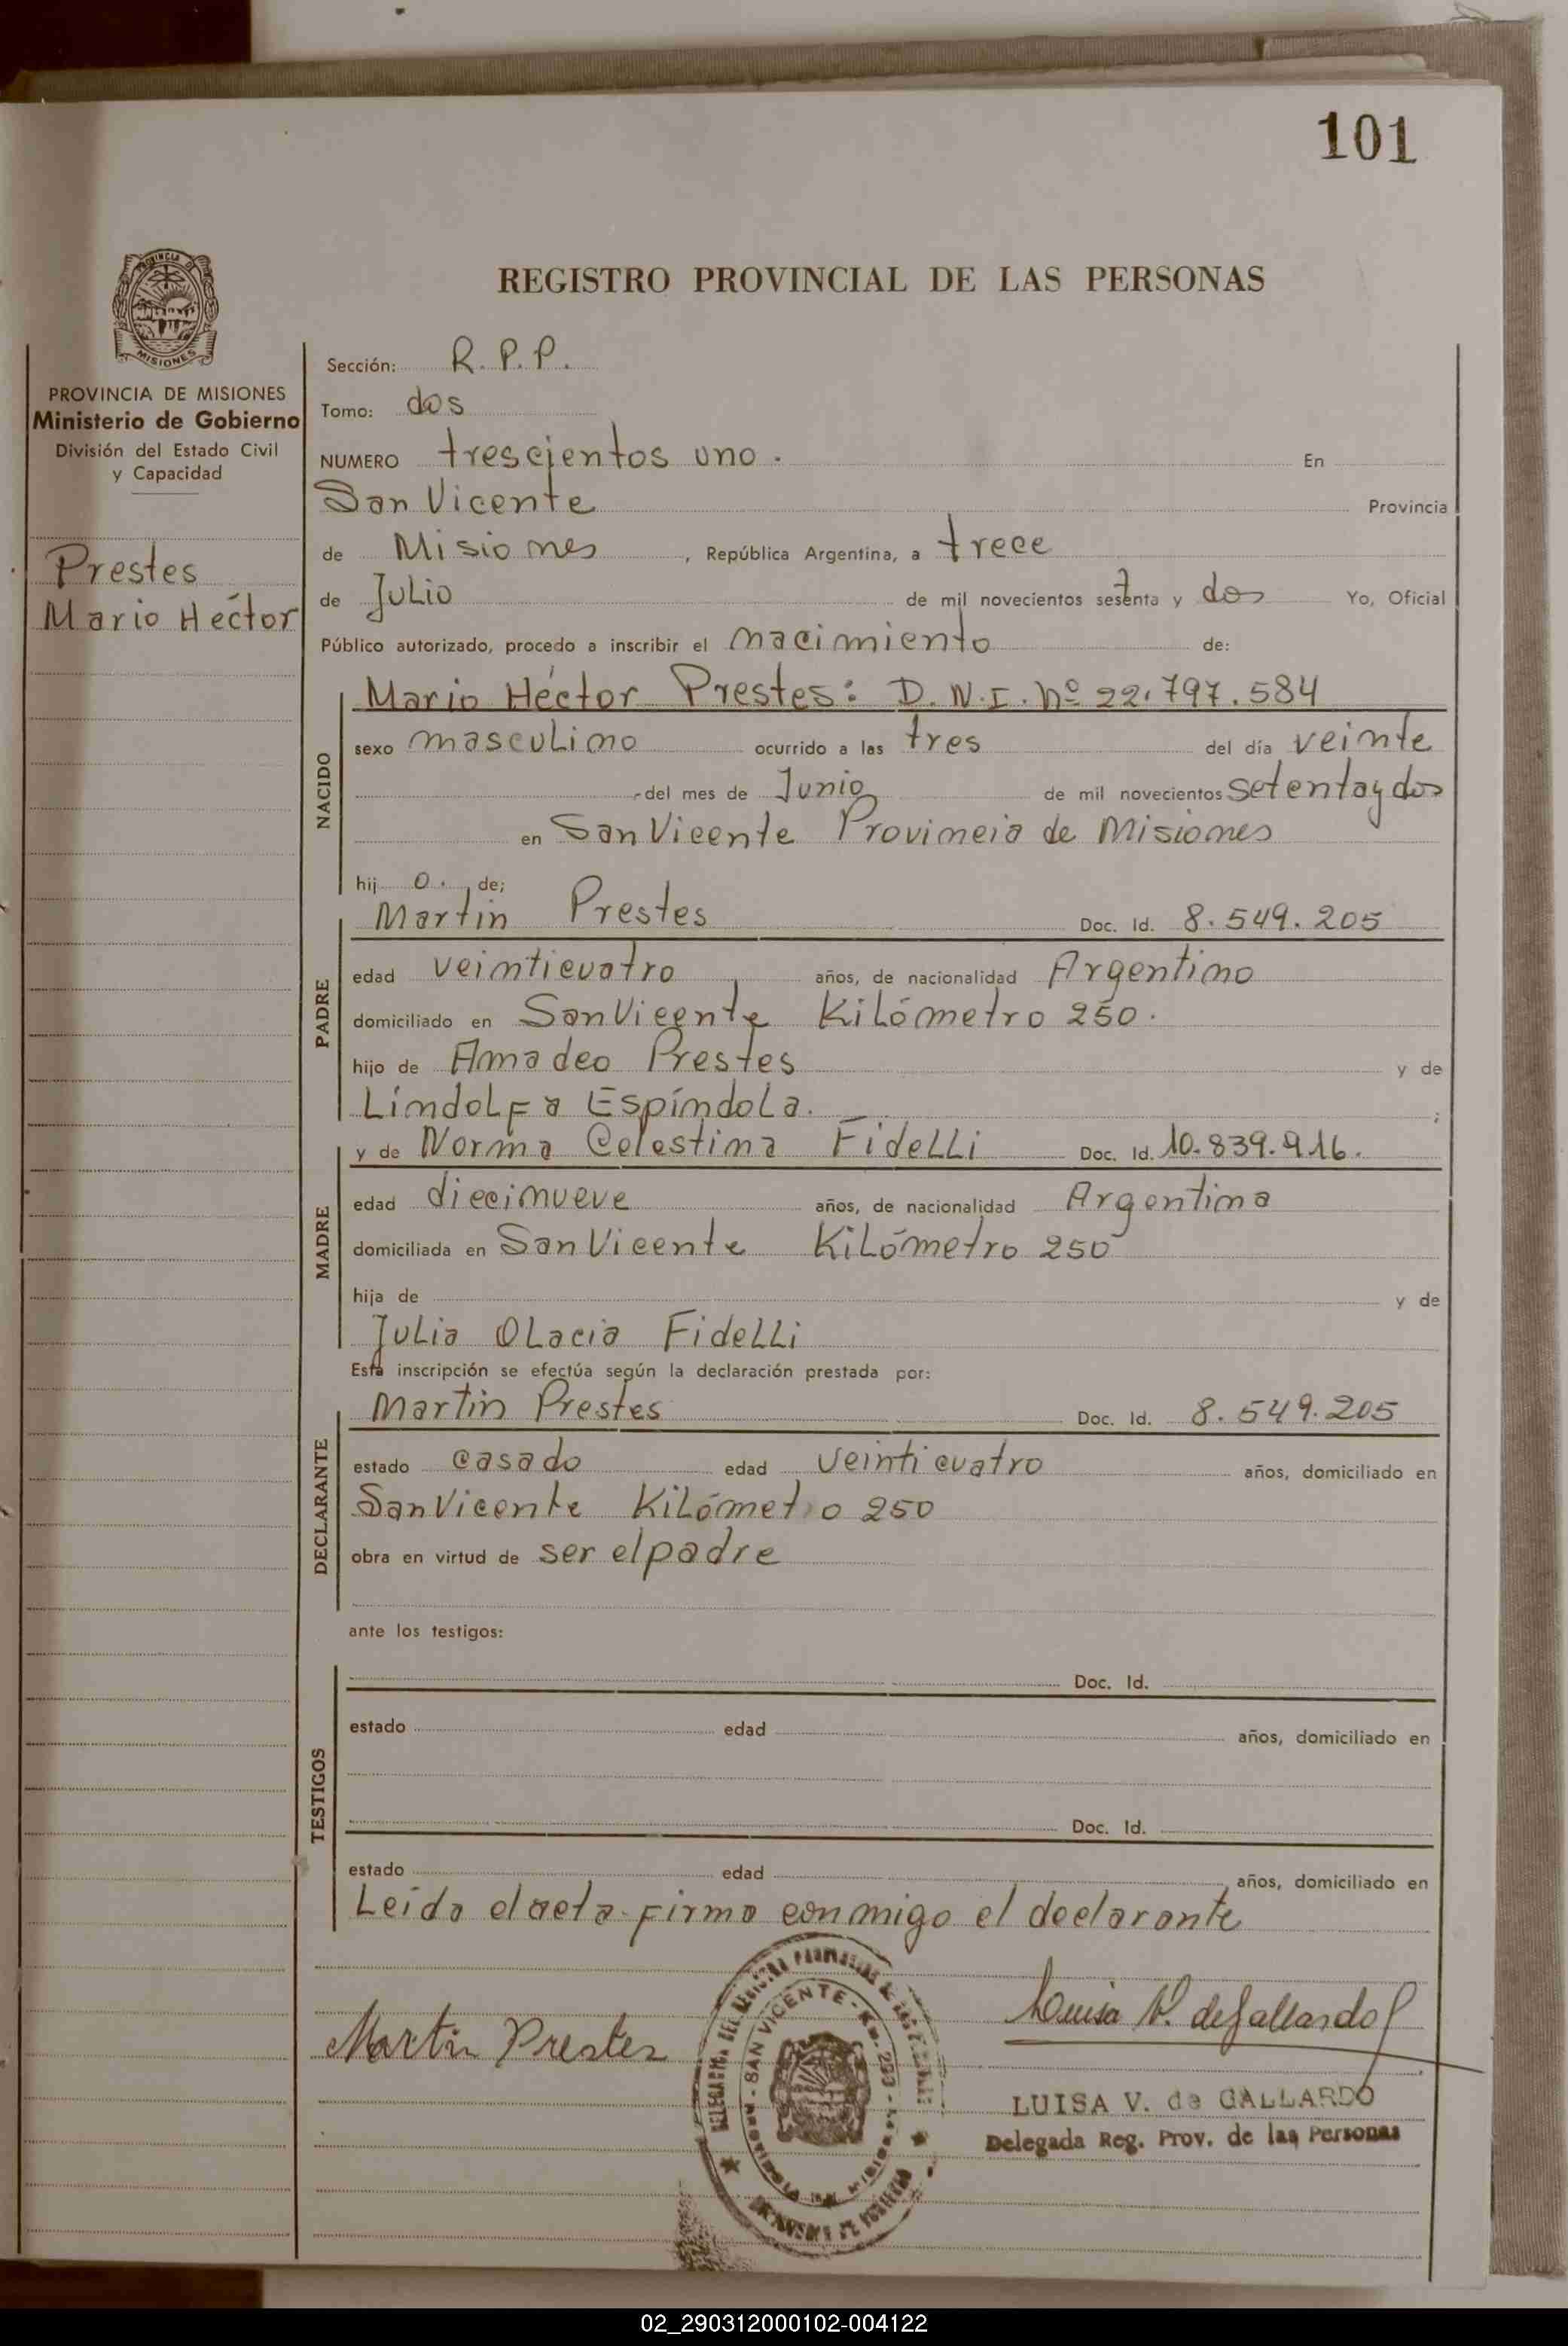 101
REGISTRO PROVINCIAL DE LAS PERSONAS
PROVINCIA DE
MISIONES
PROVINCIA DE MISIONES
Ministerio de Gobierno
División del Estado Civil
y Capacidad
Prestes
Mario Héctor
Sección: R. P. P.
Tomo: dos
NUMERO trescientos uno. En
San Vicente Provincia
de Misiones, República Argentina, a trece
de Julio de mil novecientos setenta y dos Yo, Oficial
Público autorizado, procedo a inscribir el nacimiento de:
NACIDO
Mario Héctor Prestes: D. N. I. Nº 22.797.584
sexo masculino ocurrido a las tres del día veinte
del mes de Junio de mil novecientos setenta y dos
en San Vicente Provincia de Misiones
hij o. de;
PADRE
Martin Prestes Doc. Id. 8.549.205
edad veinticuatro años, de nacionalidad Argentino
domiciliado en San Vicente Kilómetro 250.
hijo de Amadeo Prestes y de
Líndolfa Espíndola. ;
MADRE
y de Norma Celestina Fidelli Doc. Id. 10.839.916.
edad diecinueve años, de nacionalidad Argentina
domiciliada en San Vicente Kilómetro 250
hija de y de
Julia Olacia Fidelli
Esta inscripción se efectúa según la declaración prestada por:
DECLARANTE
Martin Prestes Doc. Id. 8.549.205
estado casado edad veinticuatro años, domiciliado en
San Vicente Kilómetro 250
obra en virtud de ser el padre
ante los testigos:
TESTIGOS
Doc. Id.
estado edad años, domiciliado en
Doc. Id.
estado edad años, domiciliado en
Leída el acta firma conmigo el declarante
Martin Prestes
SAN VICENTE
Luisa V. de Gallardo
LUISA V. de GALLARDO
Delegada Reg. Prov. de las Personas
02_290312000102-004122